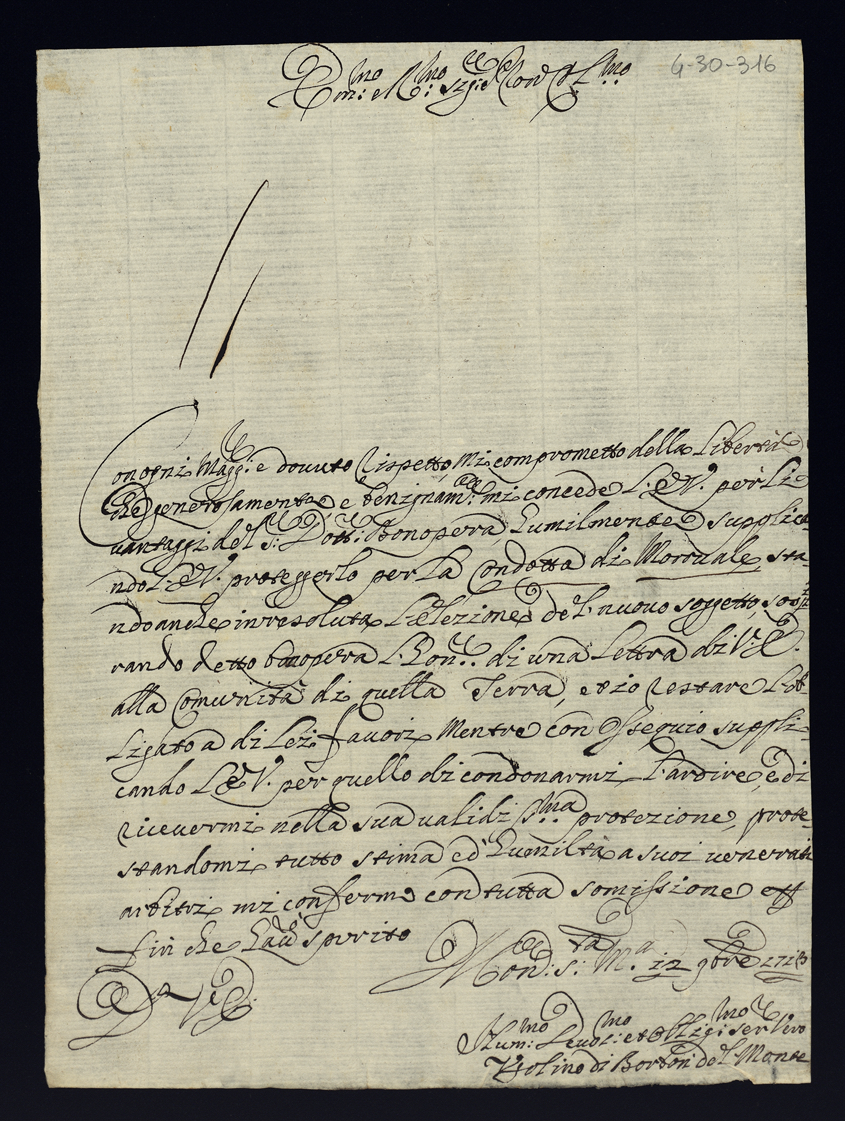 4-30-316
Em:mo e R:mo Sig:re
Con ogni Magg:re e dovuto rispetto mi comprometto della Libertà
che generosamente, e benignam:te mi concede L:E:V: per li
vantaggi del S:r Dott:r Bonopera humilmente supplica
ndo L:E:V: proteggerlo per la Condotta di Morrvale, sta-
ndo anche inresoluta l'elezione del nuovo soggetto,
rando detto Bonopera l'hon:re di una lettra di V:E:
alla Comunità di quella Terra, et io restare l'ob
ligato a di Lei favori Mentre con Ossequio suppli-
cando L:E:V: per quello di condonarmi l'ardire, e di
ricevermi nella sua validis:ma protezione, prote-
standomi tutto stima ed humiltà a suoi venerati
arbitri mi confermo con tutta somissione
fin che havrò spirito
Di V:E:
Mond: S: M:a 12 9bre
Hum:mo Devot:mo et Obligs:mo ser:re vero
di Borbon del Monte